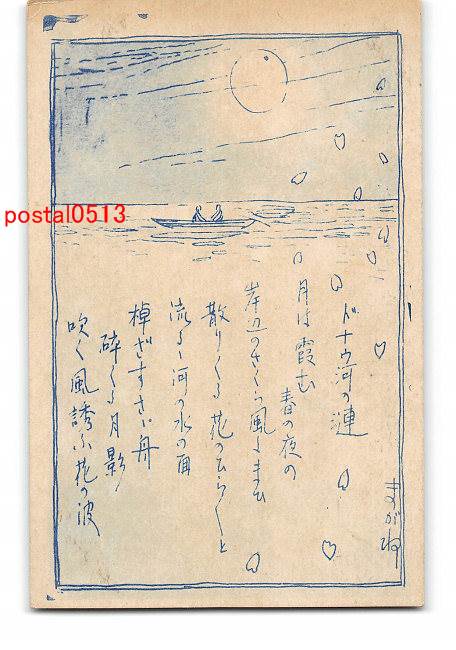 ドナウ河の漣
月は霞む
春の夜の
岸辺のさくら風にまひ
散りくる花のひら〱と
流るゝ河の水の面
棹さすさゝ舟
砕くる月影
吹く風誘ふ花の波
まがね
postal0513